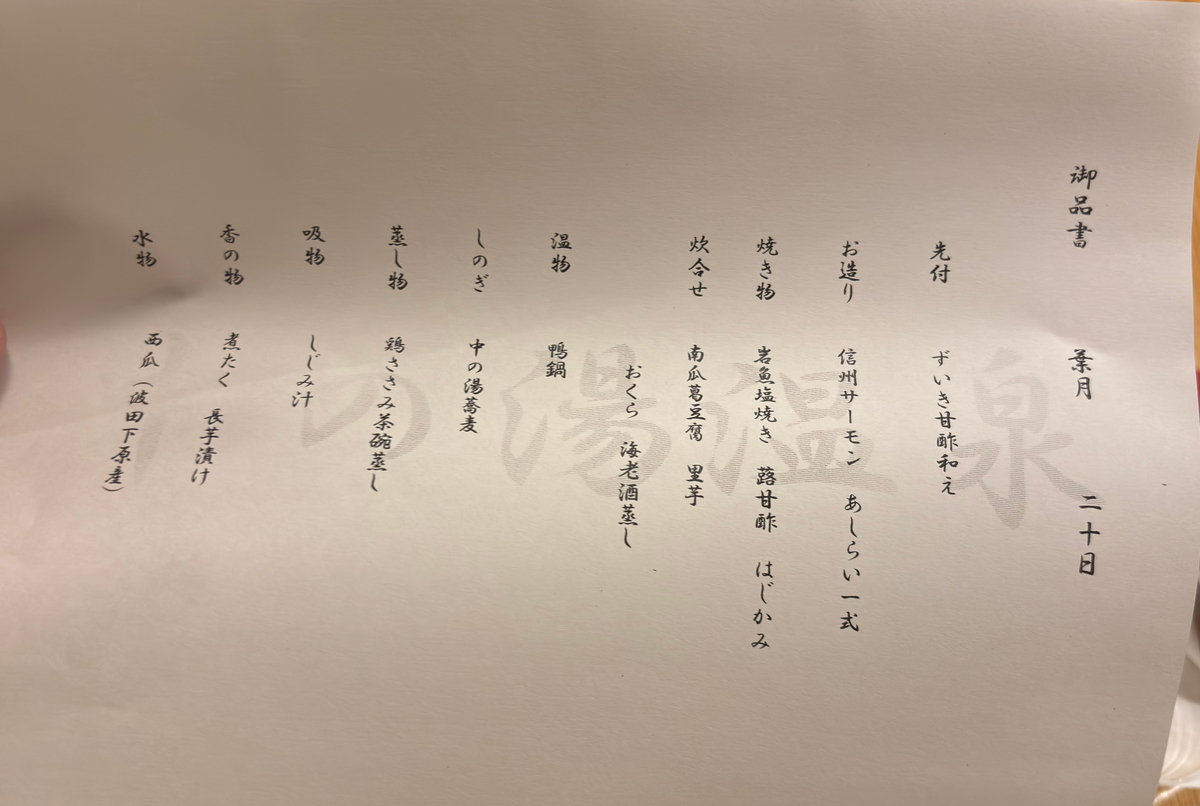 御品書　葉月　二十日
先付　ずいき甘酢和え
お造り　信州サーモン　あしらい一式
焼き物　岩魚塩焼き　蕗甘酢　はじかみ
炊合せ　南瓜葛豆腐　里芋
おくら　海老酒蒸し
温物　鴨鍋
しのぎ　中の湯蕎麦
蒸し物　鶏ささみ茶碗蒸し
吸物　しじみ汁
香の物　煮たく　長芋漬け
水物　西瓜（波田下原産）
の湯温泉